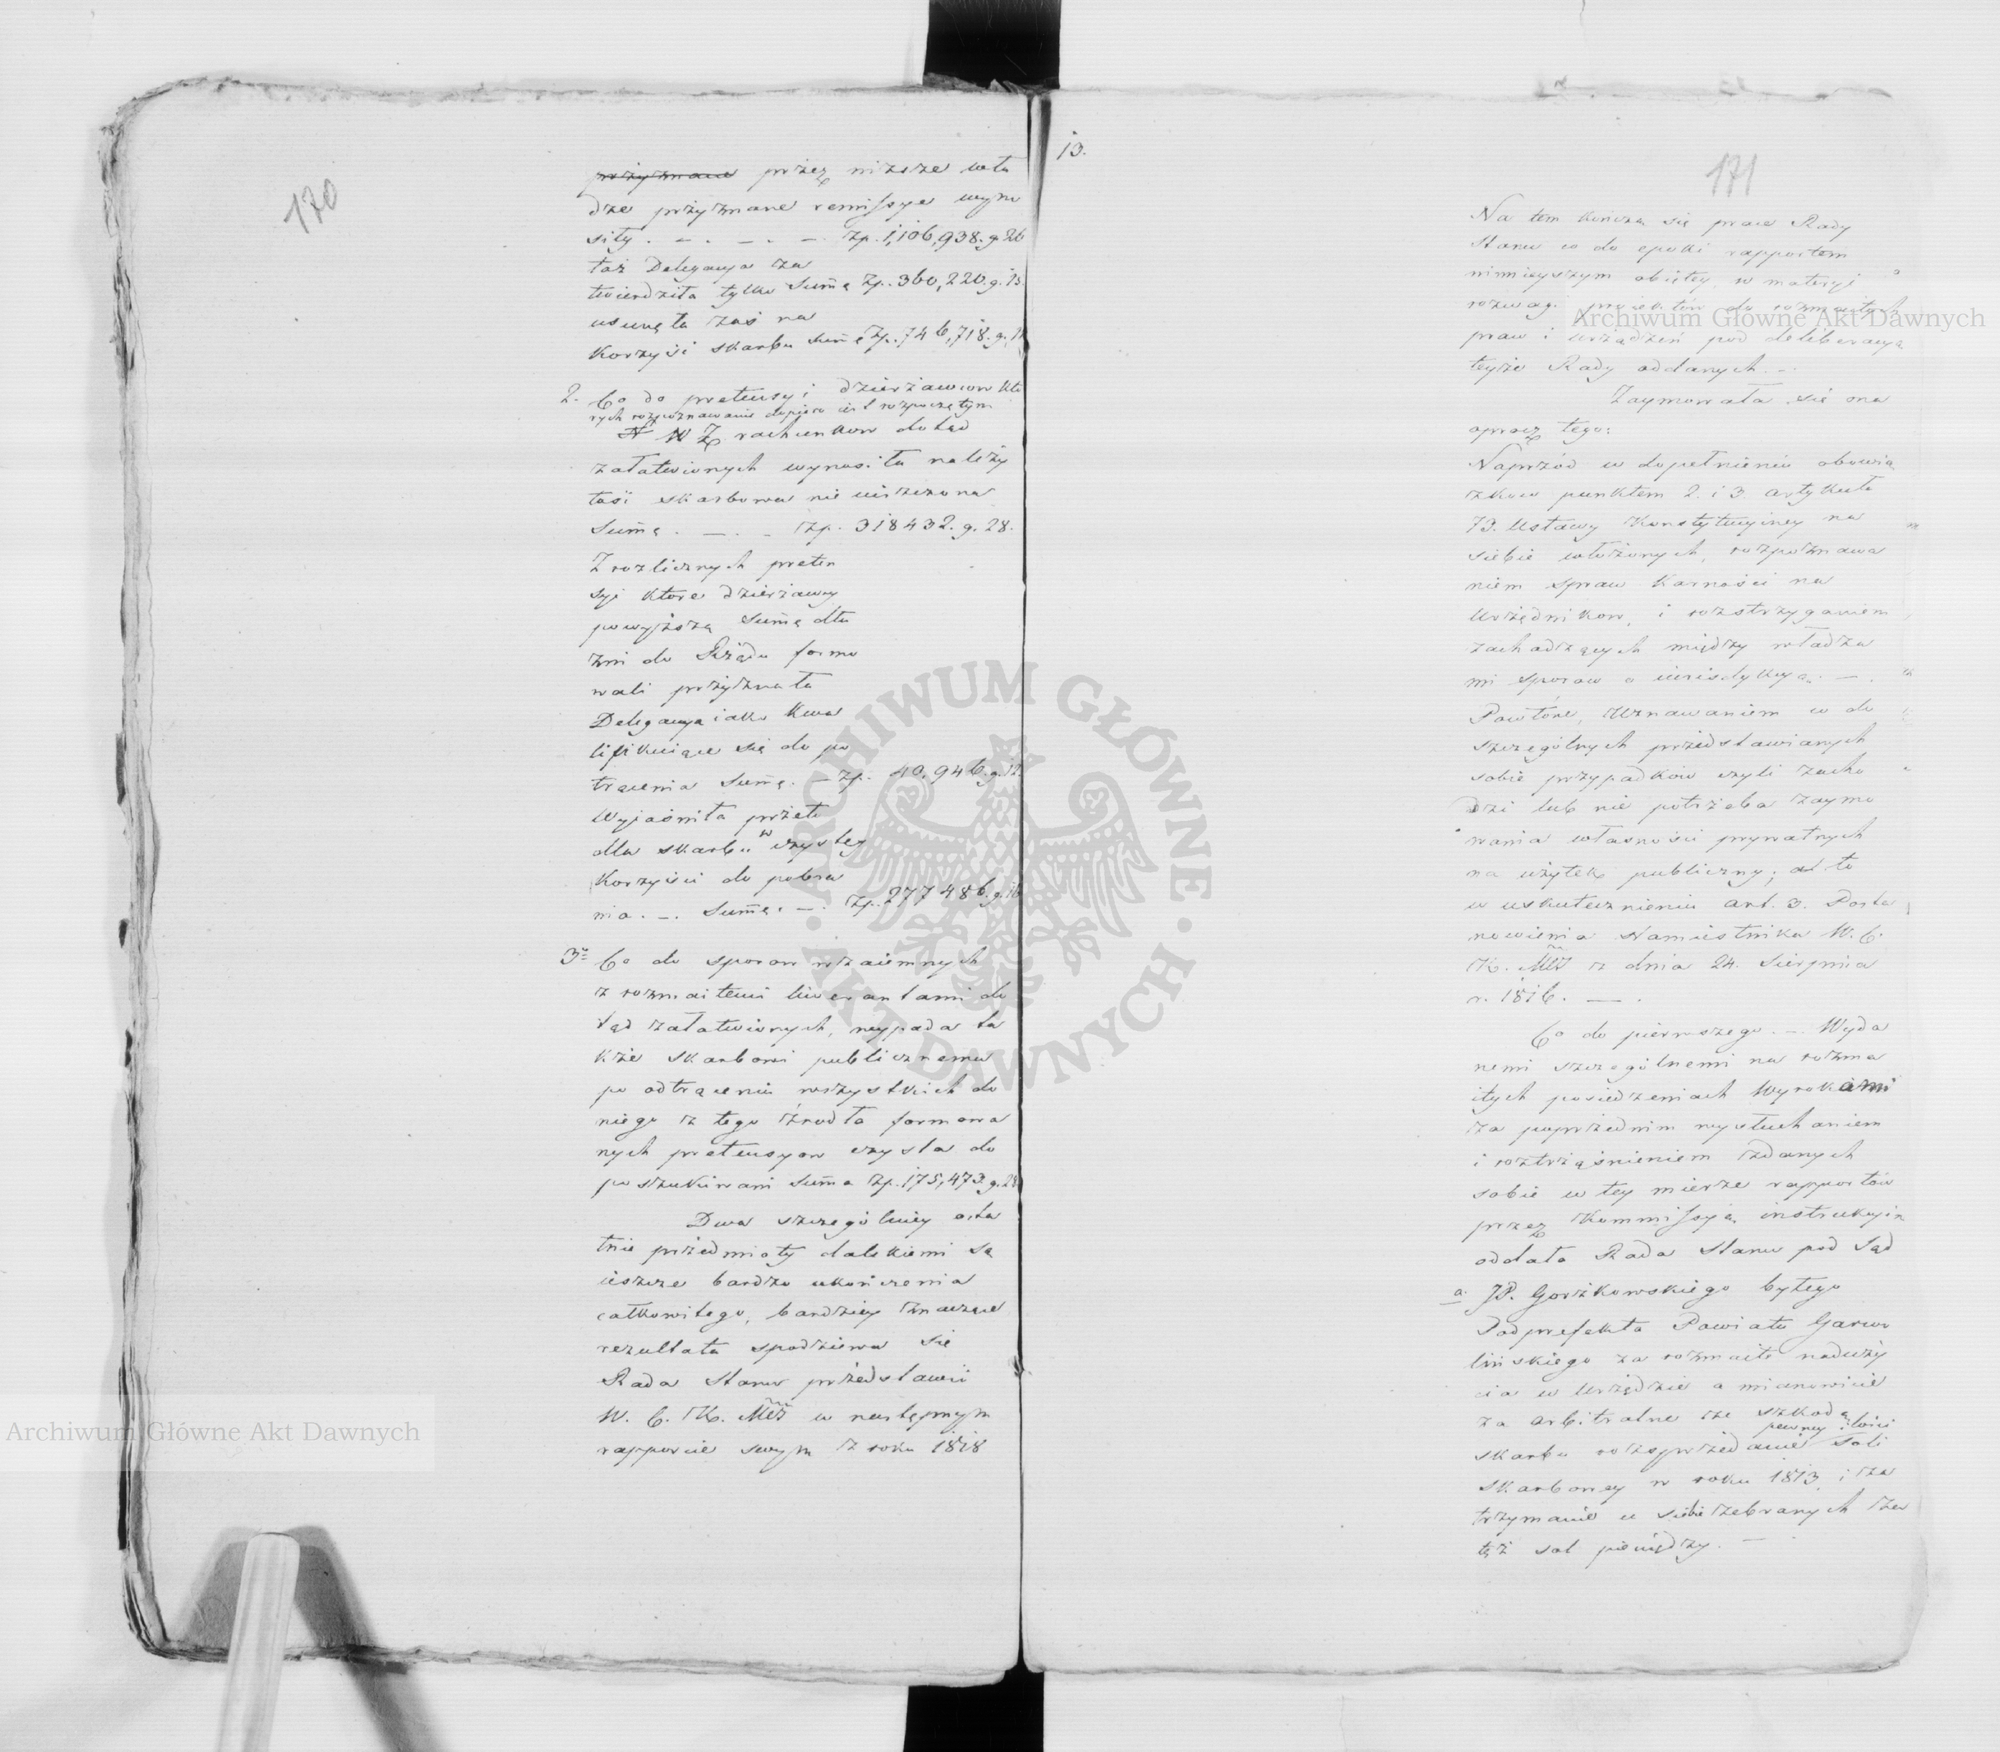 170
przyznane przez niższe wła
dze przyznane remissye wyno
siły . — . — . — zp. 1,106,938. g. 26
taż Delegacya za
twierdziła tylko Sum̄ę zp. 360,220. g. 15.
usunęła zaś na
korzyść skarbu sum̄ę zp. 746,718. g. 11
2. Co do pretensyi dzierżawcow któ
rych rozpoznawanie dopiero iest rozpoczętym
Z rachunkow dotąd
załatwionych wynosiła należy
tość skarbowa nie uiszczona
Sum̄ę . — . - zp. 318432. g. 28.
Z rozlicznych preten
syi które dzierżawcy
powyższą Sum̄ę dłu
żni do Rządu formo
wali przyznała
Delegacya iako kwa
lifikuiące się do po
trącenia Sum̄ę. — zp. 40,946. g. 12
Wyjaśniła przeto
dla skarbu w czystey
korzyści do pobra
nia . — . Sum̄ę. — . zp. 277486. g. 16
3. Co do sporow wzaiemnych
z rozmaitemi liwerantami do
tąd załatwionych, wypada ta
kże skarbowi publicznemu
po odtrąceniu wszystkich do
niego z tego źrodła formowa
nych pretensyow czysta do
poszukiwani Sum̄a zp. 175,473. g. 28
Dwa szczególniey osta
tnie przedmioty dalekiemi są
ieszcze bardzo ukończenia
całkowitego, bardziey znaczące
rezultata spodziewa się
Rada Stanu przedstawić
W. C. K. Mci w następnym
rapporcie swym z roku 1818
13.
171
Na tem kończą się prace Rady
Stanu co do epoki rapportem
ninieyszym obiętey, w materyi
rozwagi proiektów do rozmaitych
praw i urządzeń pod deliberacyą
teyże Rady oddanych. —
Zaymowała się ona
oprocz tego:
Naprzód w dopełnieniu obowią
zkow punktem 2. i 3. artykułu
73. Ustawy Konstytucyiney na
siebie włożonych, rozpoznawa
niem spraw karności na
urzędnikow, i rozstrzyganiem
zachodzących między władza
mi sporow o iurisdykcyą. — .
Powtóre, Uznawaniem co do
szczególnych przedstawianych
sobie przypadków czyli zacho
dzi lub nie potrzeba zaymo
wania własności prywatnych
na użytek publiczny; a to
w uskutecznieniu art. 3. Posta
nowienia Namiestnika W. C.
K. Mci z dnia 24. Sierpnia
r. 1816. — .
Co do pierwszego. — Wyda
nemi szczególnemi na rozma
itych posiedzeniach Wyrokami
za poprzednim wysłuchaniem
i roztrząśnieniem zdanych
sobie w tey mierze rapportów
przez Kommissyą instrukcyin
oddała Rada Stanu pod Sąd
a. JP. Gorzkowskiego byłego
Podprefekta Powiatu Garwo
lińskiego za rozmaite naduży
cia w Urzędzie a mianowicie
za arbitralne ze szkodą
skarbu rozsprzedanie pewney ilości soli
skarbowey w roku 1813, i za
trzymanie u siebie zebranych za
tęż sol pieniędzy. —
Archiwum Główne Akt Dawnych
Archiwum Główne Akt Dawnych
ARCHIWUM GŁÓWNE
· AKT DAWNYCH ·